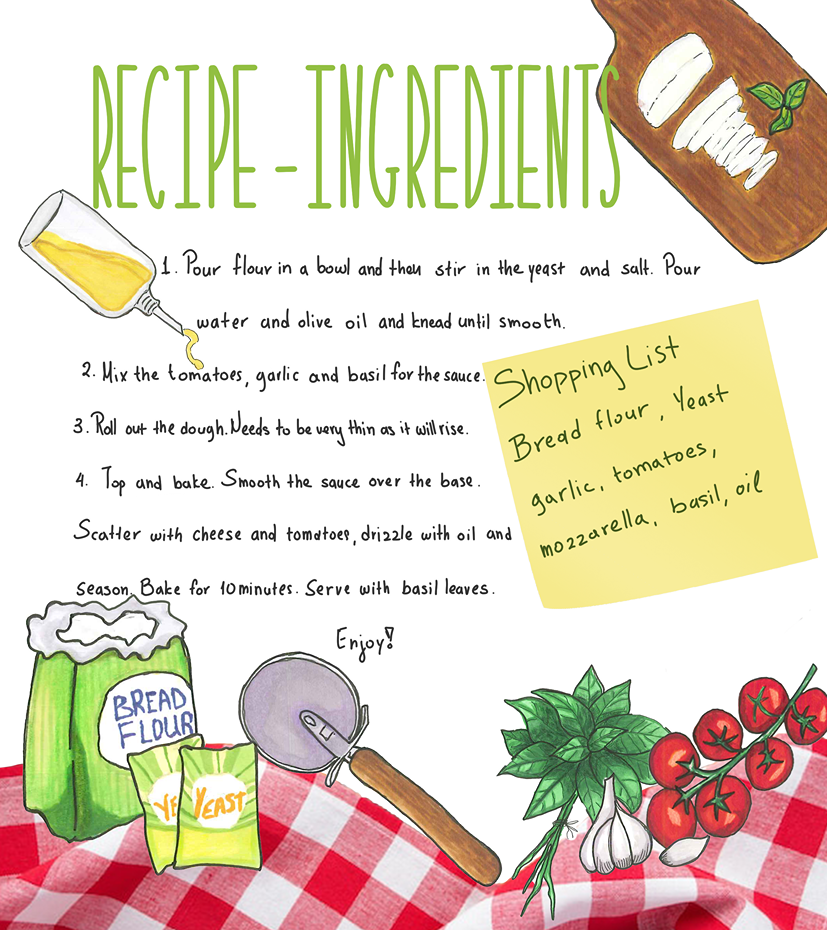 RECIPE - INGREDIENTS
1. Pour flour in a bowl and then stir in the yeast and salt. Pour
water and olive oil and knead until smooth.
2. Mix the tomatoes, garlic and basil for the sauce.
3. Roll out the dough. Needs to be very thin as it will rise.
4. Top and bake. Smooth the sauce over the base.
Scatter with cheese and tomatoes, drizzle with oil and
season. Bake for 10 minutes. Serve with basil leaves.
Enjoy!
Shopping List
Bread flour, Yeast
garlic, tomatoes,
mozzarella, basil, oil
BREAD
FLOUR
YE
YEAST